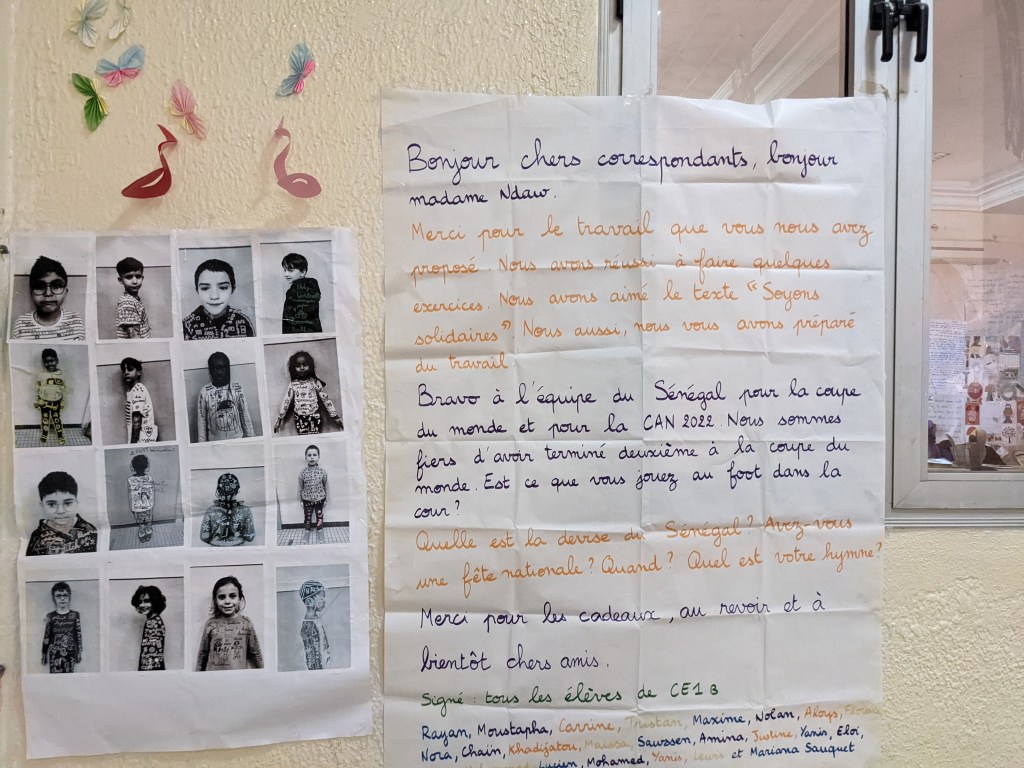 Bonjour chers correspondants, bonjour
madame Ndaw.
Merci pour le travail que vous nous avez
proposé. Nous avons réussi à faire quelques
exercices. Nous avons aimé le texte "Soyons
solidaires" Nous aussi, nous vous avons préparé
du travail
Bravo à l'équipe du Sénégal pour la coupe
du monde et pour la CAN 2022. Nous sommes
fiers d'avoir terminé deuxième à la coupe du
monde. Est ce que vous jouez au foot dans la
cour?
Quelle est la devise du Sénégal? Avez-vous
une fête nationale? Quand? Quel est votre hymne?
Merci pour les cadeaux, au revoir et à
bientôt chers amis.
Signé : tous les élèves de CE1 B
Rayan, Moustapha, Carrine, Tristan, Maxime, Nolan, Aloys,
Nora, Chain, Khadijatou, Maïssa, Sawssen, Amina, Justine, Yanis, Eloi,
Lucien, Mohamed, Yanis, Louis et Mariana Sauquet